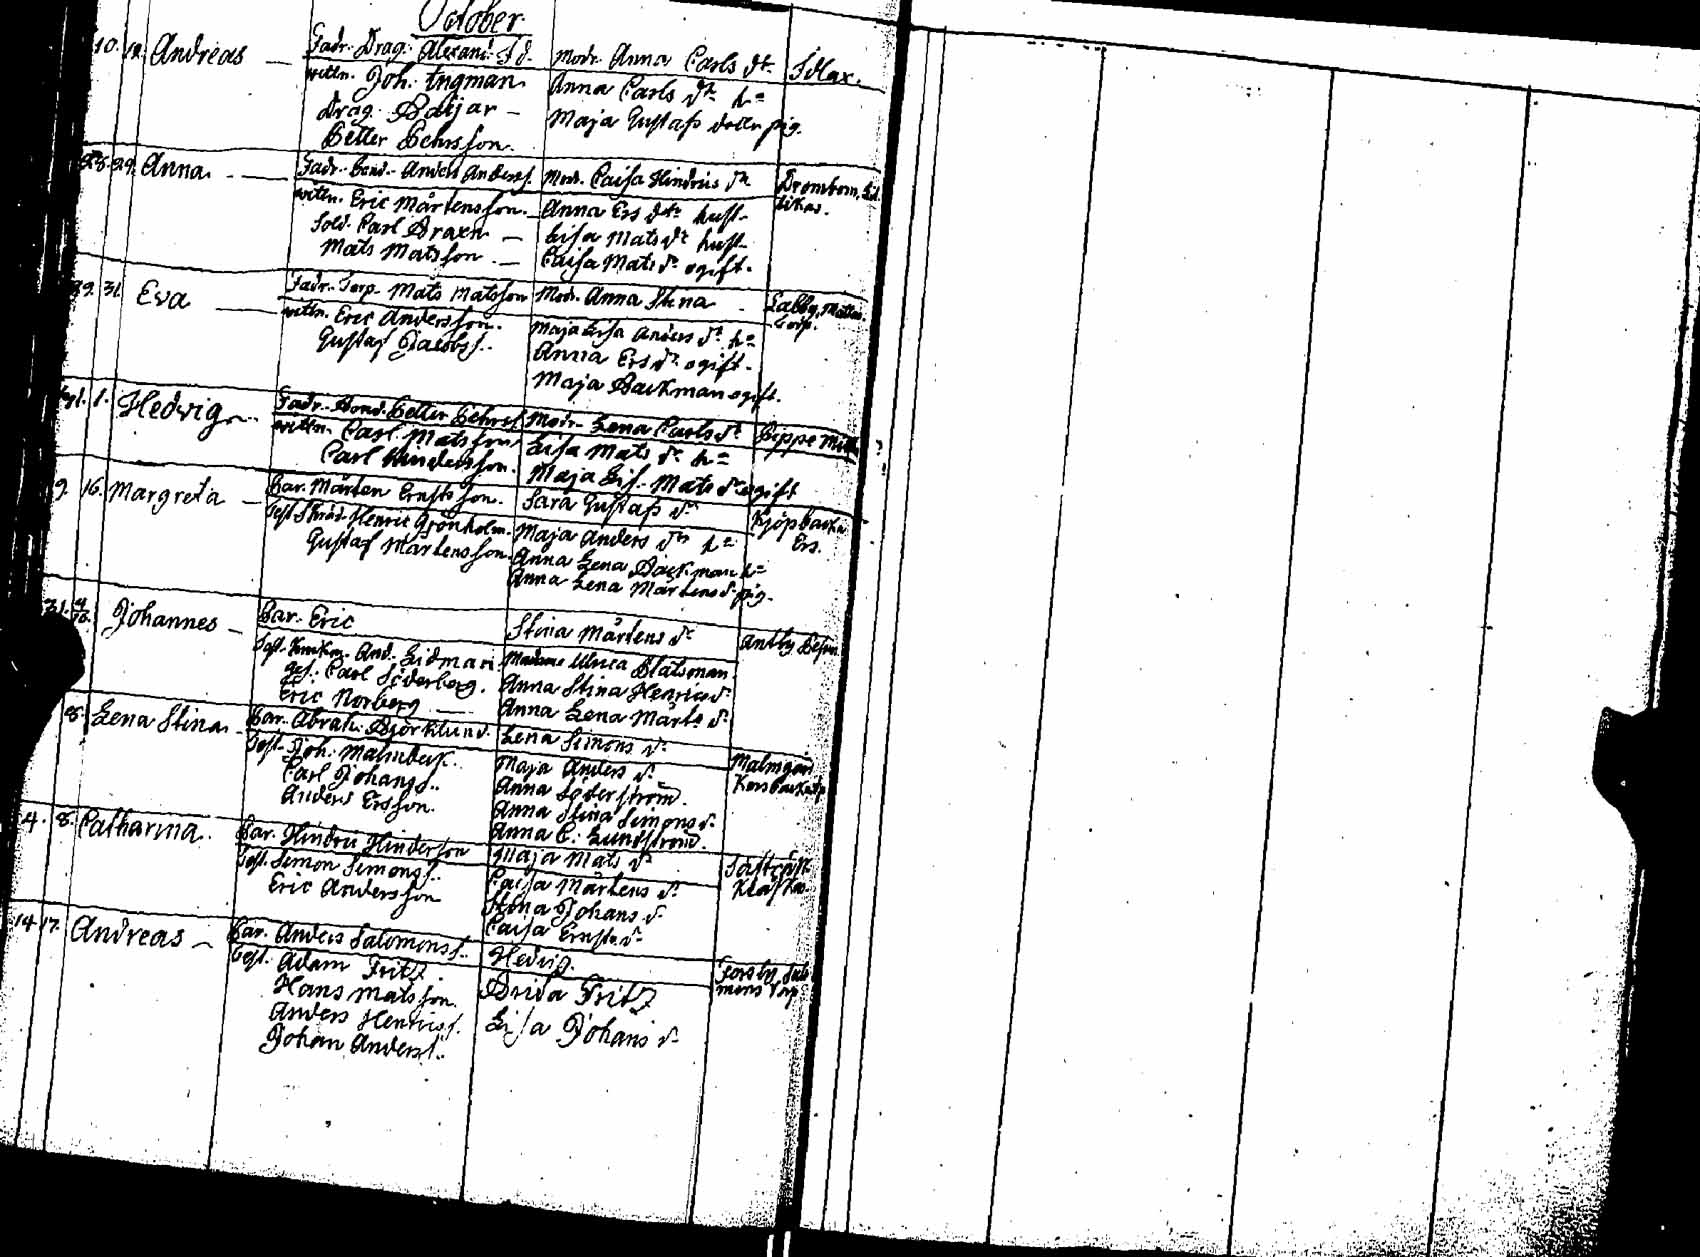 October
10. 12. Andreas — Fadr. Drag. Alexand. Id. Modr. Anna Carls dr. Idlax.
wittn. Joh. Engman Anna Carls dr. h=
Drag. Batjar — Maja Gustafs dotter pig.
Petter Pehrsson.
28. 29. Anna. — Fadr. Bond. Anders Anders. Modr. Caisa Hindrics dr. Drombom,
wittn. Eric Mårtensson. Anna Ers dr. hust.
Sold. Carl Draxn — Lisa Mats dr. hust.
Mats Matsson. — Caisa Mats dr. ogift.
29. 31. Eva — Fadr. Torp. Mats Matsson Modr. Anna Stina — Labby,
wittn. Eric Andersson. Maja Lisa Anders dr. h= torp.
Gustaf Jacobss. Anna Ers dr. ogift.
Maja Backman ogift.
1. Hedvig — Fadr. Bond. Petter Pehrss. Modr. Lena Carls dr. Gippe
wittn. Carl Matsson Lisa Mats dr. h=
Carl Hindersson. Maja Lis. Mats dr. ogift
9. 16. Margreta — Par. Mårten Ernstsson. Sara Gustafs dr. Kjöpbacka
Test. Henric Grönholm. Maja Anders dr. h= Ers.
Gustaf Mårtensson. Anna Lena Backman h=
Anna Lena Mårtens dr. pig.
21. 4/10. Johannes — Par. Eric Stina Mårtens dr. Antby
Test. And. Lidman. Madame Ulrica Blatsman
ges. Carl Söderberg. Anna Stina Henrics dr.
Eric Norberg — Anna Lena Mårts dr.
8. Lena Stina. Par. Abrah. Björklund. Lena Simons dr. Malmgård
Test. Joh. Malmbeck. Maja Anders dr.
Carl Johanss. Anna Söderström.
Anders Ersson. Anna Stina Simons dr.
Anna C. Lundström.
4. 8. Catharina. Par. Hindric Hinderson Maja Mats dr.
Test. Simon Simonss. Caisa Mårtens dr.
Eric Andersson Stina Johans dr.
Caisa Ernsts dr.
14. 17. Andreas — Par. Anders Salomonss. Hedvig. Forsby
Test. Adam Fritz. Brita Fritz torp.
Hans Matsson. Lisa Johans dr.
Anders Henricss.
Johan Anderss.